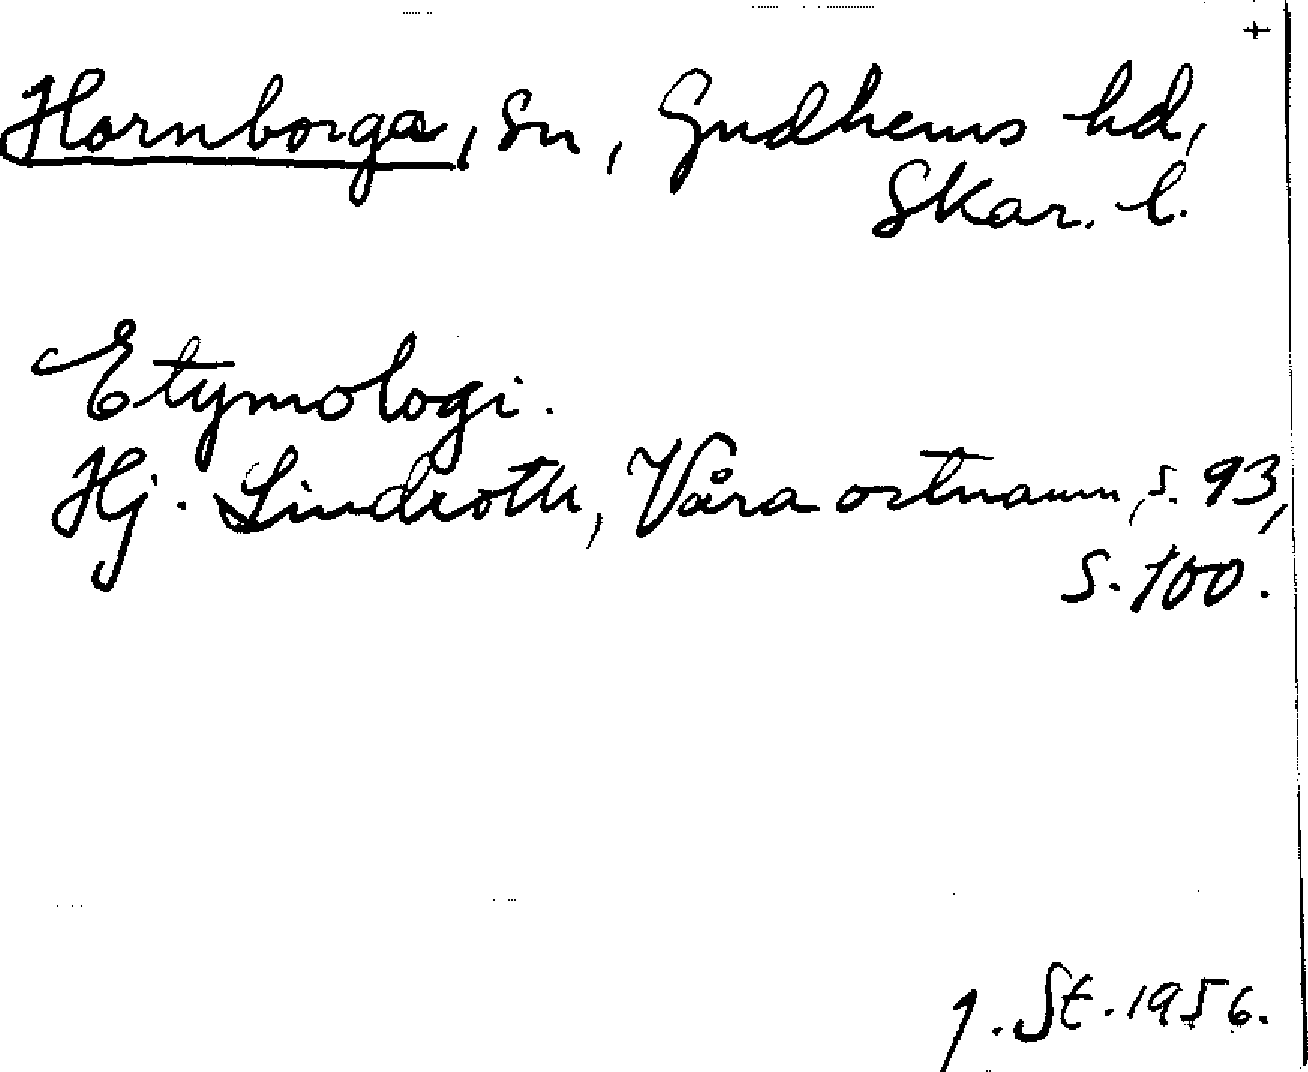 +
Hornborga, sn, Gudhems hd,
Skar. l.
Etymologi.
Hj. Lindroth, Våra ortnamn, s. 93,
s. 100.
J. St. 1956.